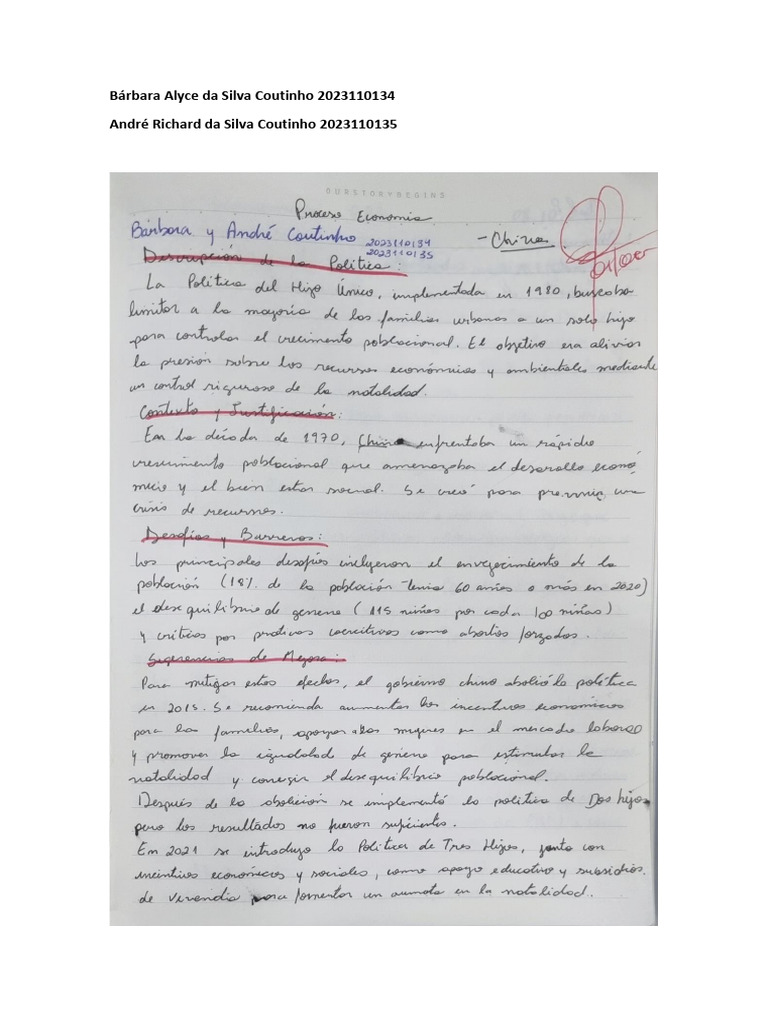 Bárbara Alyce da Silva Coutinho 2023110134
André Richard da Silva Coutinho 2023110135
OURSTORYBEGINS
Proceso Economia
Bárbara y André Coutinho 2023110134
2023110135
- China
Descripción de la Política:
La Política del Hijo Único, implementada en 1980, buscaba
limitar a la mayoría de las familias urbanas a un solo hijo
para controlar el crecimiento poblacional. El objetivo era aliviar
la presión sobre los recursos económicos y ambientales mediante
un control riguroso de la natalidad.
Contexto y Justificación:
En la década de 1970, China enfrentaba un rápido
crecimiento poblacional que amenazaba el desarollo econó
mico y el bien estar social. Se creó para prevenir una
crisis de recursos.
Desafíos y Barreras:
Los principales desafíos incluyeron el envejecimiento de la
población (18% de la población tenia 60 años o más en 2020)
el desequilibrio de genero (115 niños por cada 100 niñas)
y críticas por prativas coercitivas como abortos forzados.
Sugerencias de Mejora:
Para mitigar estos efectos, el gobierno chino abolió la política
en 2015. Se recomienda aumentar los incentivos económicos
para las familias, apoyar a las mujeres en el mercado laboral
y promover la igualdad de genero para estimular la
natalidad y corregir el desequilibrio poblacional.
Después de la abolición se implementó la politica de Dos hijos
pero los resultados no fueron suficientes.
Em 2021 se introdujo la Política de Tres Hijos, junto con
incentivos económicos y sociales, como apoyo educativo y subsidios
de vivienda para fomentar un aumento en la natalidad.